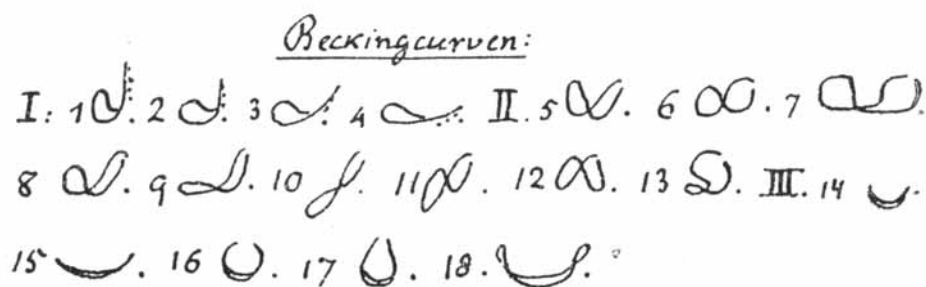 Beckingcurven:
I: 1 2 3 4 II. 5 . 6 . 7 .
8 . 9 . 10 . 11 . 12 . 13 . III. 14 .
15 . 16 . 17 . 18. .